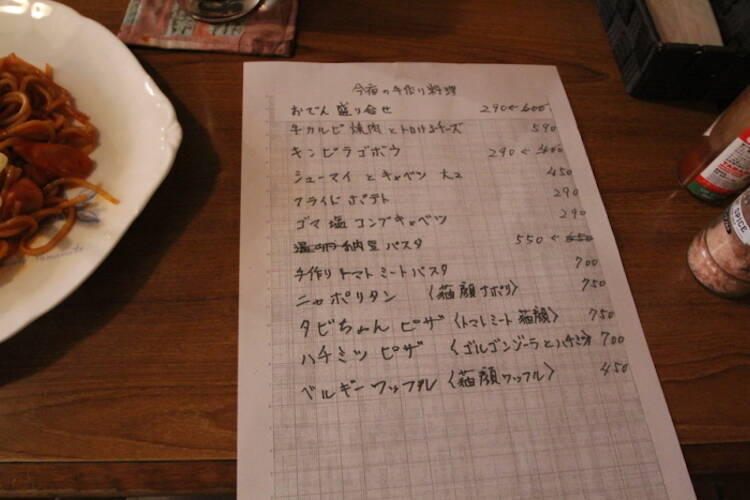 今夜の手作り料理
おでん 盛り合せ 290<600
牛カルビ 焼肉 とトロけるチーズ 590
キンピラゴボウ 290<400
シューマイ と キャベツ 大2 450
フライドポテト 290
ゴマ塩 コンブキャベツ 290
納豆 パスタ 550<650
手作り トマト ミートパスタ 700
ニャポリタン 〈猫顔ナポリ〉 750
タビちゃん ピザ 〈トマトミート 猫顔〉 750
ハチミツ ピザ 〈ゴルゴンゾーラとハチミツ 700
ベルギー ワッフル 〈猫顔ワッフル〉 450
SPICE